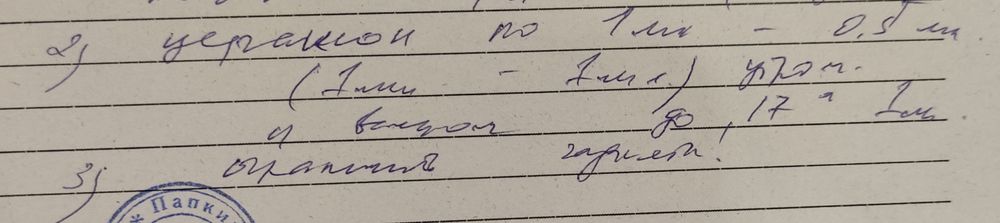 2) церакон по 1 мл – 0,5 мл
(1 мл – 1 мл) утром
и вечером до 17 ч 1 мл
3) ограничить гаджеты!
* Папки